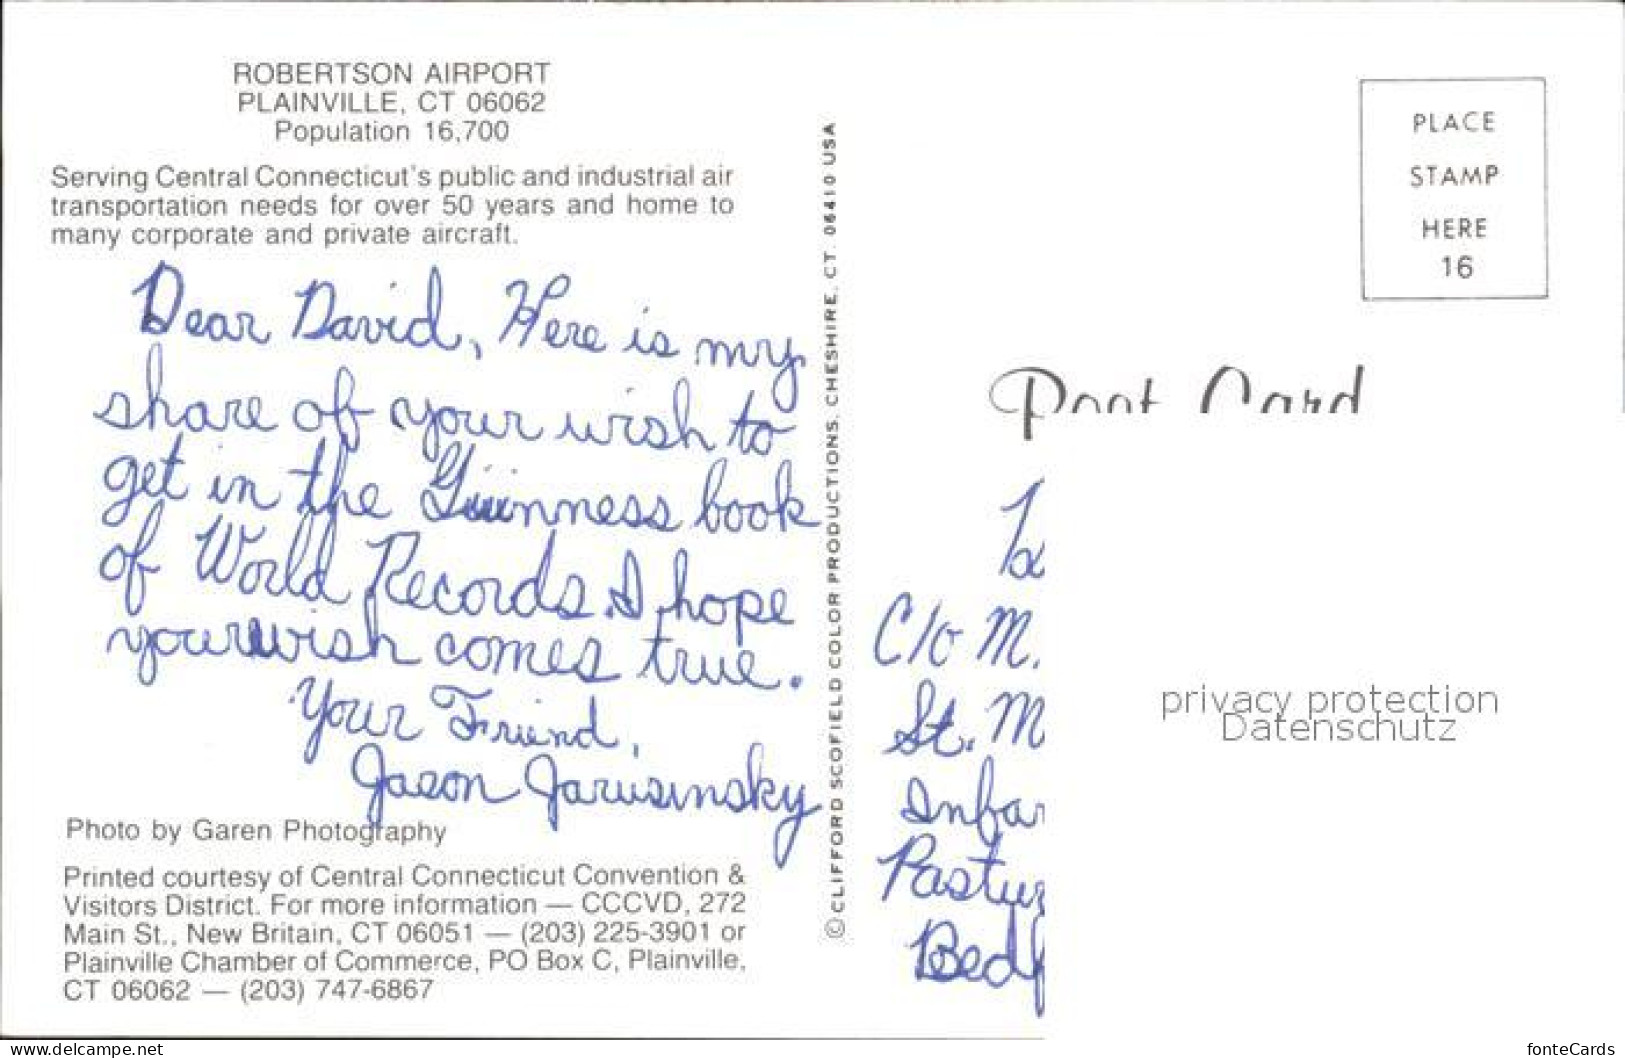 ROBERTSON AIRPORT
PLAINVILLE, CT 06062
Population 16,700
Serving Central Connecticut's public and industrial air
transportation needs for over 50 years and home to
many corporate and private aircraft.
Dear David, Here is my
share of your wish to
get in the Guinness book
of World Records. I hope
your wish comes true.
Your Friend,
Jason Jarusinsky
Photo by Garen Photography
Printed courtesy of Central Connecticut Convention &
Visitors District. For more information — CCCVD, 272
Main St., New Britain, CT 06051 — (203) 225-3901 or
Plainville Chamber of Commerce, PO Box C, Plainville,
CT 06062 — (203) 747-6867
©CLIFFORD SCOFIELD COLOR PRODUCTIONS, CHESHIRE, CT. 06410 USA
PLACE
STAMP
HERE
16
Post Card
C/o M.
St. M
Infar
Pastur
Bedf
privacy protection
Datenschutz
www.delcampe.net
fonteCards